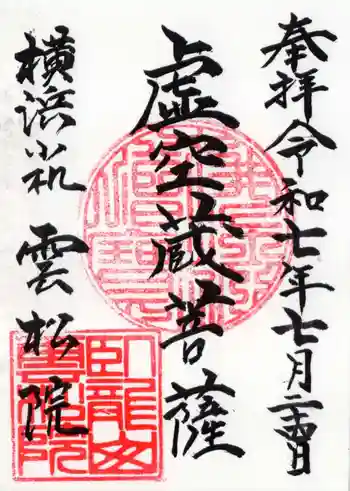 奉拝 令和七年七月二十四日
虚空蔵菩薩
横浜小机 雲松院
臥龍山雲松院